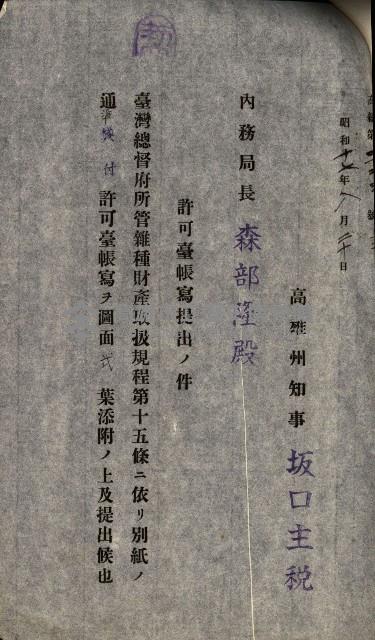 昭和十七年八月二十日
高雄州知事 坂口主税
内務局長 森部隆殿
許可臺帳寫提出ノ件
臺灣總督府所管雜種財產取扱規程第十五條ニ依リ別紙ノ
通 付許可臺帳寫ヲ圖面 葉添附ノ上及提出候也